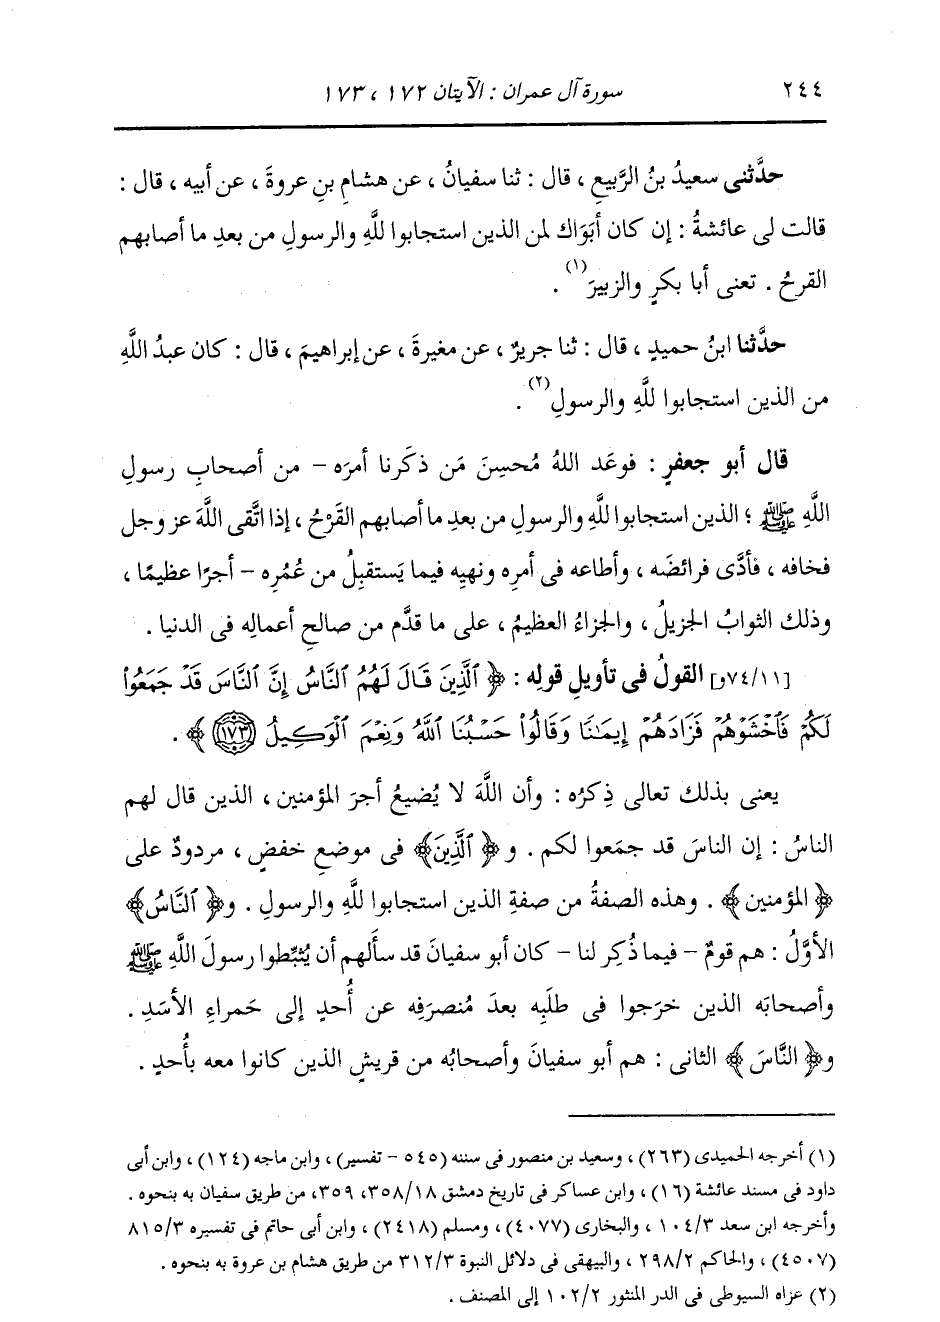 ٢٤٤ سورة آل عمران : الآيتان ١٧٢ ، ١٧٣
حدَّثنى سعيدُ بنُ الرَّبيعِ ، قال : ثنا سفيانُ ، عن هشامِ بنِ عروةَ ، عن أبيه ، قال :
قالت لى عائشةُ : إن كان أبَوَاك لمن الذين استجابوا للَّهِ والرسولِ من بعدِ ما أصابهم
القرحُ . تعنى أبا بكرٍ والزبيرَ(١) .
حدَّثنا ابنُ حميدٍ ، قال : ثنا جريرٌ ، عن مغيرةَ ، عن إبراهيمَ ، قال : كان عبدُ اللَّهِ
من الذين استجابوا للَّهِ والرسولِ(٢) .
قال أبو جعفرٍ : فوعَد اللهُ مُحسِنَ مَن ذكَرنا أمرَه – من أصحابِ رسولِ
اللَّهِ ﷺ ؛ الذين استجابوا للَّهِ والرسولِ من بعدِ ما أصابهم القَرْحُ ، إذا اتَّقى اللَّهَ عز وجل
فخافه ، فأدَّى فرائضَه ، وأطاعه فى أمرِه ونهيِه فيما يَستقبِلُ من عُمُرِه – أجرًا عظيمًا ،
وذلك الثوابُ الجزيلُ ، والجزاءُ العظيمُ ، على ما قدَّم من صالحِ أعمالِه فى الدنيا .
[٧٤/١١و] القولُ فى تأويلِ قولِه : ﴿ ٱلَّذِينَ قَالَ لَهُمُ ٱلنَّاسُ إِنَّ ٱلنَّاسَ قَدْ جَمَعُواْ
لَكُمْ فَٱخْشَوْهُمْ فَزَادَهُمْ إِيمَٰنًا وَقَالُواْ حَسْبُنَا ٱللَّهُ وَنِعْمَ ٱلْوَكِيلُ ١٧٣ ﴾ .
يعنى بذلك تعالى ذِكرُه : وأن اللَّهَ لا يُضيعُ أجرَ المؤمنين ، الذين قال لهم
الناسُ : إن الناسَ قد جمَعوا لكم . و ﴿ ٱلَّذِينَ﴾ فى موضعِ خفضٍ ، مردودٌ على
﴿ المؤمنين ﴾ . وهذه الصفةُ من صفةِ الذين استجابوا للَّهِ والرسولِ . و﴿ ٱلنَّاسُ ﴾
الأوَّلُ : هم قومٌ – فيما ذُكِر لنا – كان أبو سفيانَ قد سأَلهم أن يُثبِّطوا رسولَ اللَّهِ ﷺ
وأصحابَه الذين خرَجوا فى طلَبِه بعدَ مُنصرَفِه عن أُحدٍ إلى حَمراءِ الأسَدِ .
و﴿ النَّاسَ ﴾ الثانى : هم أبو سفيانَ وأصحابُه من قريشٍ الذين كانوا معه بأُحدٍ .
(١) أخرجه الحميدى (٢٦٣) ، وسعيد بن منصور فى سننه (٥٤٥ – تفسير) ، وابن ماجه (١٢٤) ، وابن أبى
داود فى مسند عائشة (١٦) ، وابن عساكر فى تاريخ دمشق ٣٥٨/١٨، ٣٥٩، من طريق سفيان به بنحوه .
وأخرجه ابن سعد ١٠٤/٣ ، والبخارى (٤٠٧٧) ، ومسلم (٢٤١٨) ، وابن أبى حاتم فى تفسيره ٨١٥/٣
(٤٥٠٧) ، والحاكم ٢٩٨/٢ ، والبيهقى فى دلائل النبوة ٣١٢/٣ من طريق هشام بن عروة به بنحوه .
(٢) عزاه السيوطى فى الدر المنثور ١٠٢/٢ إلى المصنف .